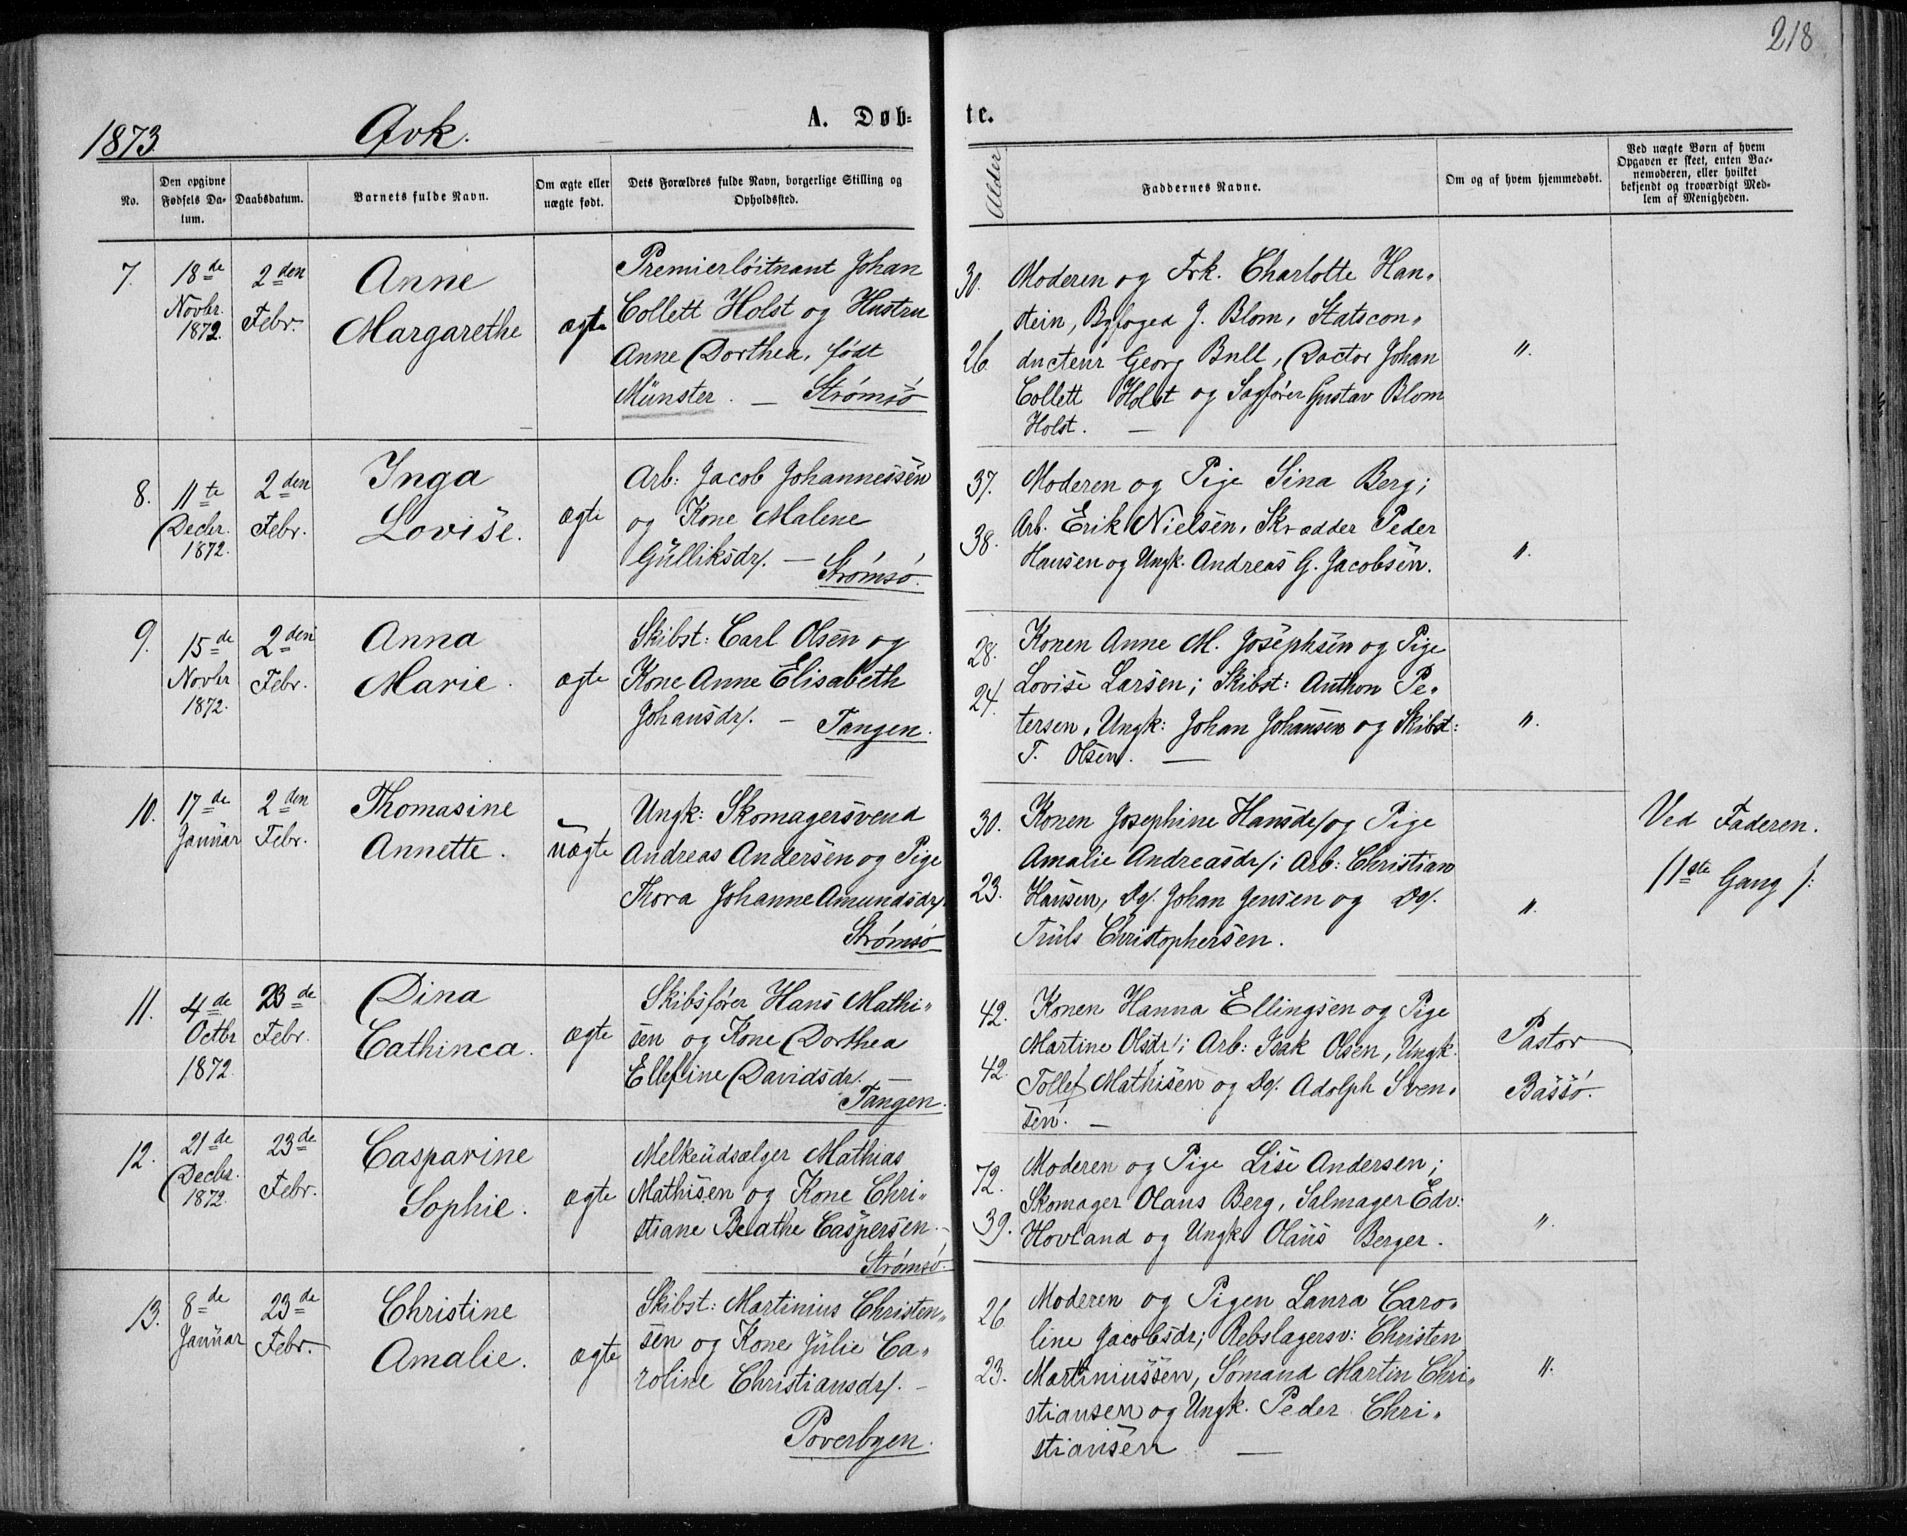 218
1873
Qvk.
A. Døb-
te.
No.
Den opgivne
Fødsels Da-
tum.
Daabsdatum.
Barnets fulde Navn.
Om ægte eller
uægte født.
Dets Forældres fulde Navn, borgerlige Stilling og
Opholdssted.
Alder
Faddernes Navne.
Om og af hvem hjemmedøbt.
Ved uægte Børn af hvem
Opgaven er skeet, enten Bar-
nemoderen, eller hvilket
bekjendt og troværdigt Med-
lem af Menigheden.
7.
18de
Novbr.
1872.
2den
Febr.
Anne
Margarethe
ægte
Premierløitnant Johan
Collett Holst og Hustru
Anne Dorthea, født
Münster. — Strømsø
30.
26
Moderen og Frk. Charlotte Han-
stein, Byfoged J. Blom, Statscon-
ducteur Georg Bull, Doctor Johan
Collett Holst og Sagfører Gustav Blom
Holst. —
"
8.
11te
Decbr.
1872.
2den
Febr.
Inga
Lovise.
ægte
Arb: Jacob Johannessen
og Kone Malene
Gulliksdr/. — Strømsø.
37.
38.
Moderen og Pige Sina Berg;
Arb. Erik Nielsen, Skrædder Peder
Hansen og Ungk. Andreas G. Jacobsen.
"
9.
15de
Novbr
1872.
2den
Febr.
Anna
Marie.
ægte
Skibst: Carl Olsen og
Kone Anne Elisabeth
Johansdr/. — Tangen.
28.
24.
Konen Anne M. Josephsen og Pige
Lovise Larsen; Skibst: Anthon Pe-
tersen, Ungk: Johan Johansen og Skibst:
T. Olsen. —
"
10.
17de
Januar
2den
Febr.
Thomasine
Annette.
uægte
Ungk: Skomagersvend
Andreas Andersen og Pige
Thora Johanne Amundsdr/.
Strømsø
30.
23.
Konen Josephine Hansdr/ og Pige
Amalie Andreasdr/; Arb: Christian
Hansen, Do/. Johan Jensen og Do/.
Truls Christophersen.
"
Ved Faderen.
/1ste Gang/:
11.
4de
Octbr
1872.
23de
Febr.
Dina
Cathinca.
ægte
Skibsfører Hans Mathi-
sen og Kone Dorthea
Ellefine Davidsdr/. —
Tangen.
42.
42.
Konen Hanna Ellingsen og Pige
Martine Olsdr/; Arb: Isak Olsen, Ungk.
Tollef Mathisen og Do/. Adolph Sven-
sen. —
Pastor
Bassø.
12.
21de
Decbr.
1872.
23de
Febr.
Casparine
Sophie.
ægte
Melkeudsælger Mathias
Mathisen og Kone Chri-
stiane Beathe Caspersen. —
Strømsø.
72.
39.
Moderen og Pige Lise Andersen;
Skomager Olaus Berg, Salmager Edv:
Hovland og Ungk. Olaus Berger.
"
13.
8de
Januar
23de
Febr.
Christine
Amalie.
ægte
Skibst: Martinius Christen-
sen og Kone Julie Ca-
roline Christiansdr/. —
Poverbyen.
26
23.
Moderen og Pigen Laura Caro-
line Jacobsdr; Rebslagersv: Christen
Martiniussen, Sømand Martin Chri-
stiansen og Ungk. Peder Chri-
stiansen —
"